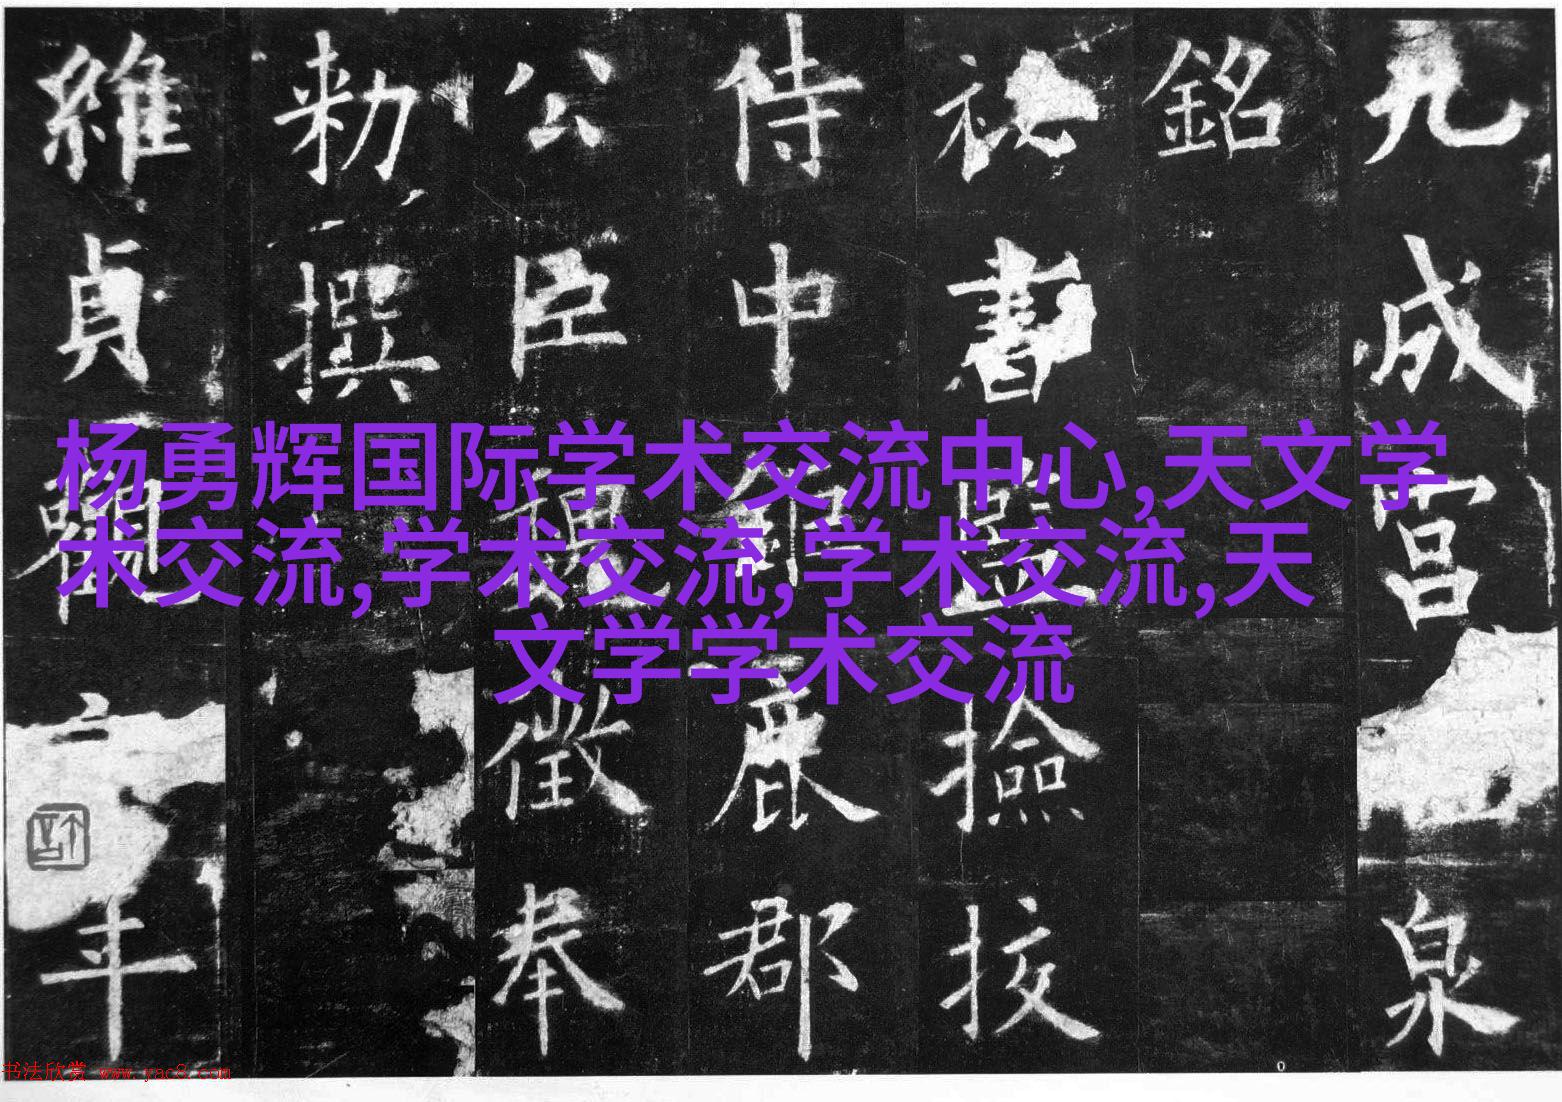 九成宮泉
銘
祕書監撿挍
侍中鹿郡
公臣魏徵奉
勑撰
維貞觀六年
杨勇辉国际学术交流中心,天文学
术交流,学术交流,学术交流,天
文学学术交流
书法欣赏 www.yac8.com